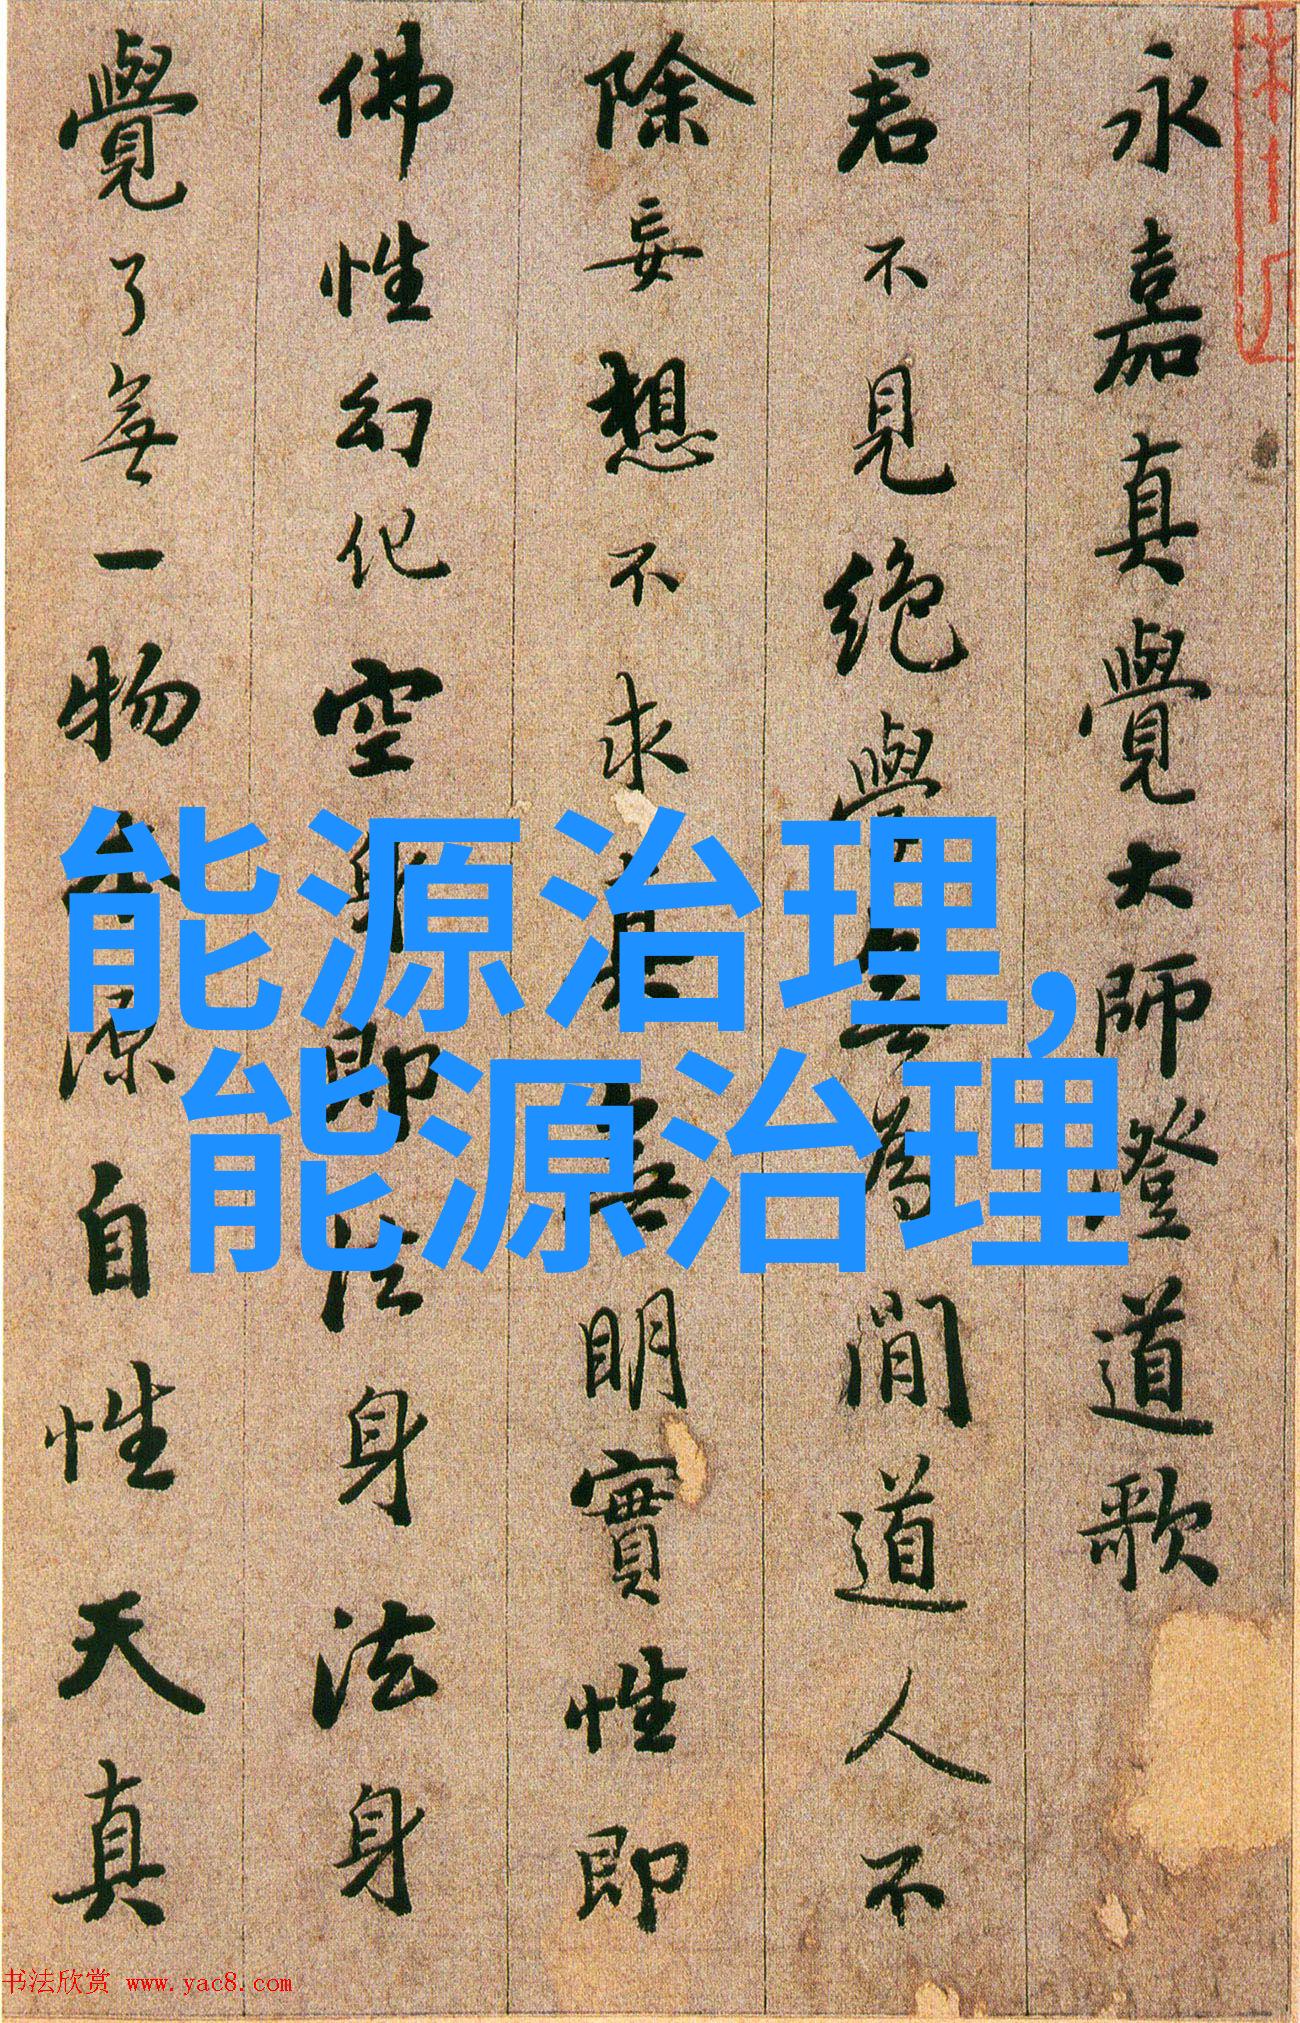 永嘉真覺大師證道歌
君不見絕學無為閒道人不
除妄想不求真無明實性即
佛性幻化空身即法身法身
覺了無一物本源自性天真
能源治理,
能源治理
书法欣赏 www.yac8.com